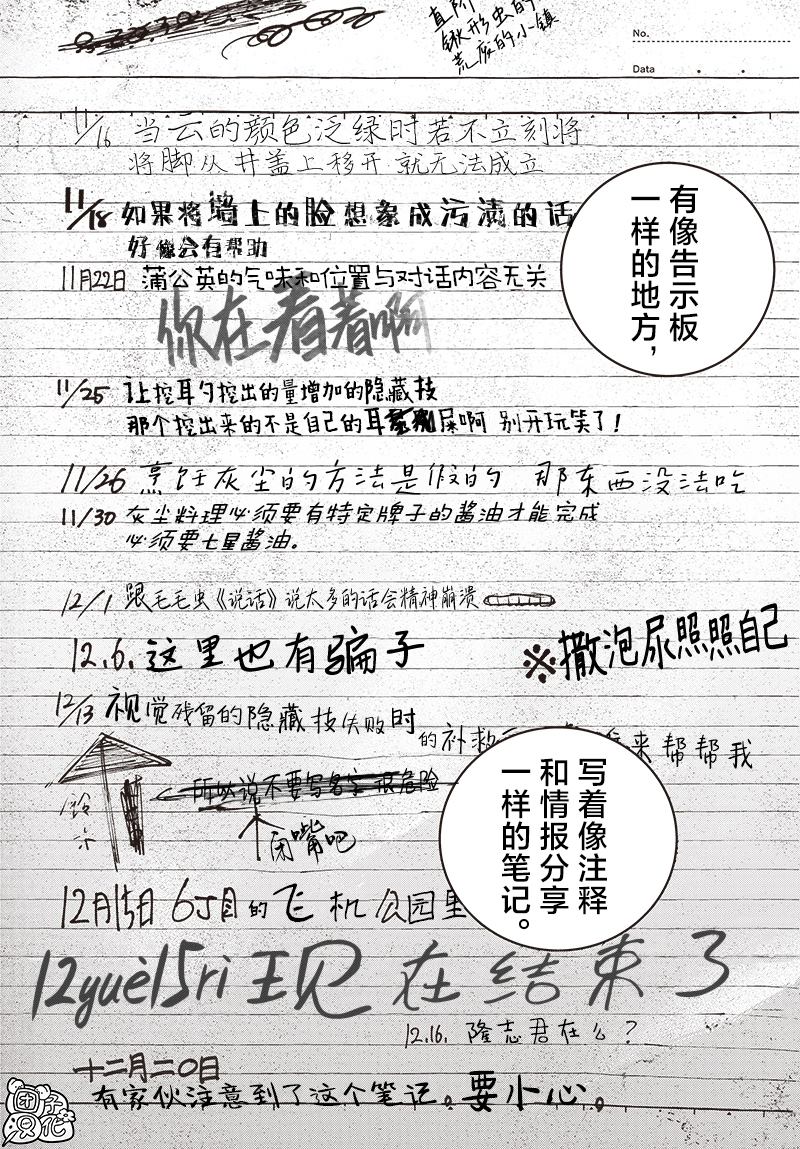 直阶
锹形虫的
荒废的小镇
No.
Data
11/16 当云的颜色泛绿时若不立刻将
将脚从井盖上移开 就无法成立
11/18 如果将墙上的脸想象成污渍的话
好像会有帮助
11月22日 蒲公英的气味和位置与对话内容无关
你在看着啊
有像告示板
一样的地方，
11/25 让挖耳勺挖出的量增加的隐藏技
那个挖出来的不是自己的耳屎啊 别开玩笑了！
11/26 烹饪灰尘的方法是假的 那东西没法吃
11/30 灰尘料理必须要有特定牌子的酱油才能完成
必须要七星酱油。
12/1 跟毛毛虫《说话》说太多的话会精神崩溃
12.6. 这里也有骗子
※撒泡尿照照自己
12/13 视觉残留的隐藏技失败时
的补救 来帮帮我
所以说不要写名字 很危险
铃木
闭嘴吧
写着像注释
和情报分享
一样的笔记。
12月15日 6丁目的飞机公园里
12yuè15rì 现在结束了
12.16. 隆志君在么？
十二月二〇日
有家伙注意到了这个笔记。要小心。
团子汉化